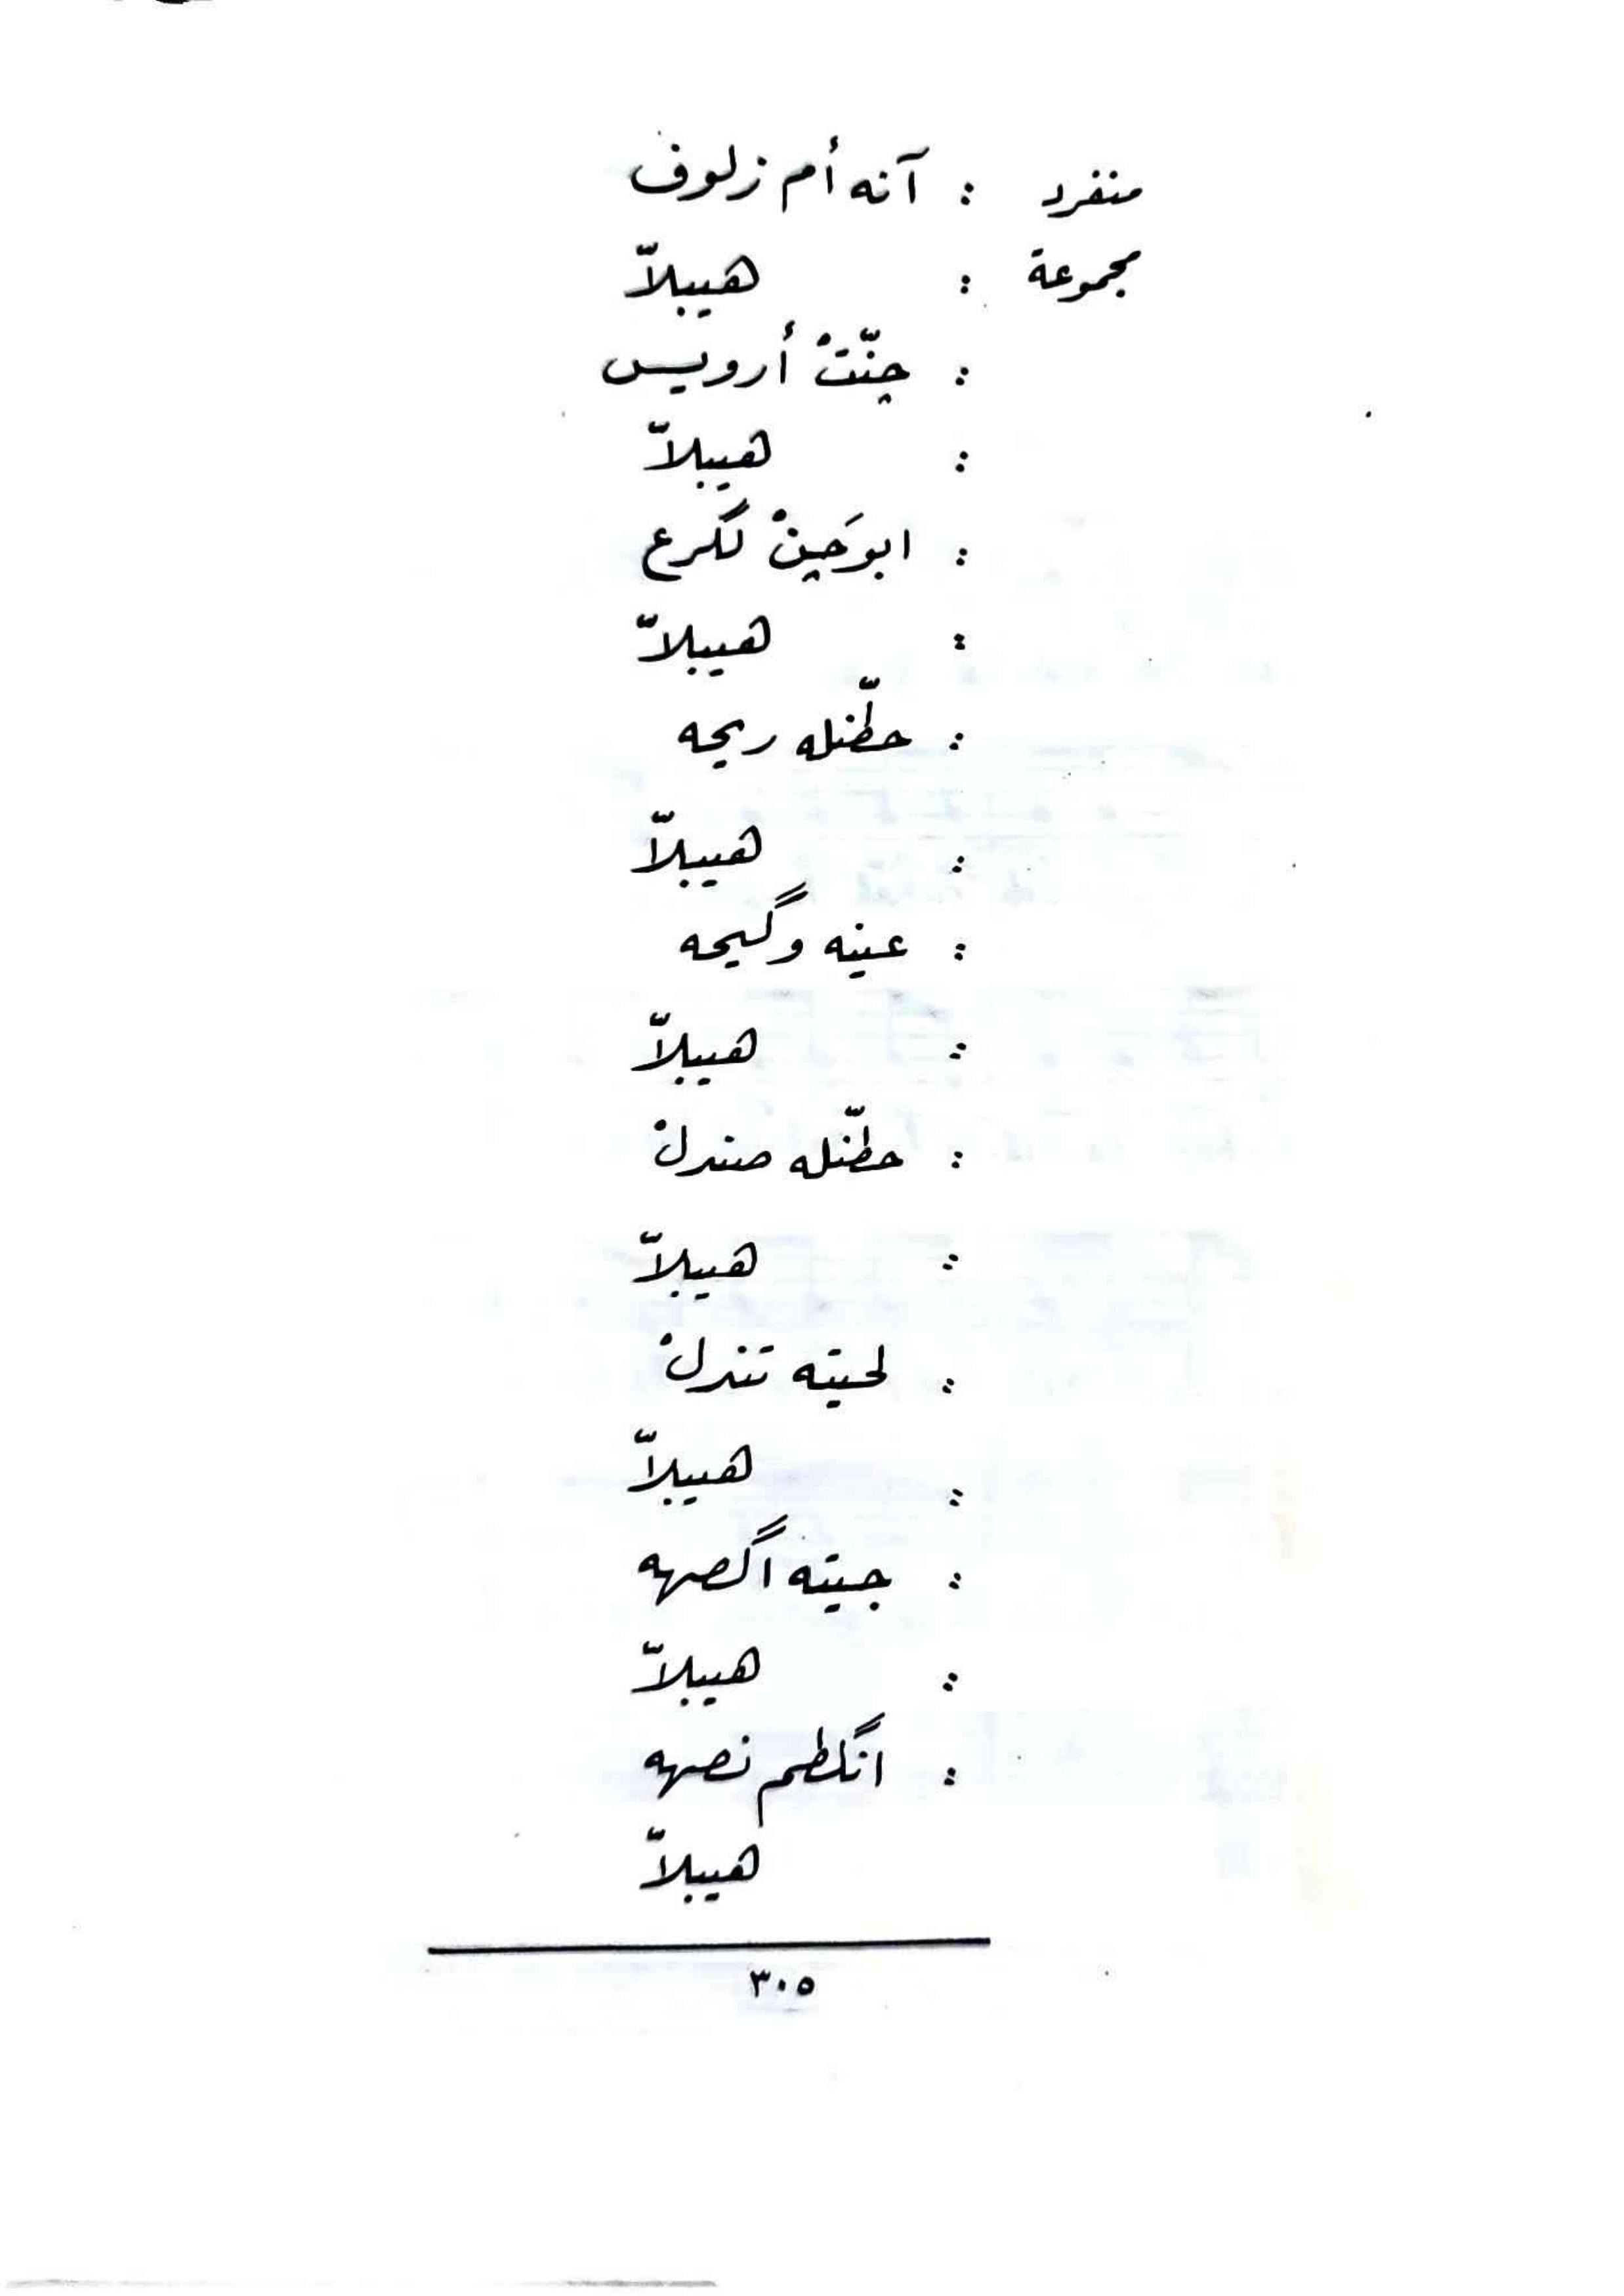 منفرد : آنه أم زلوف
مجموعة : هيبلاّ
: چنّتْ أرويس
: هيبلاّ
: ابوچَينْ لگرع
: هيبلاّ
: حطّنله ريحه
: هيبلاّ
: عينه وگيحه
: هيبلاّ
: حطّنله صندلْ
: هيبلاّ
: لحيته تندلْ
: هيبلاّ
: جيته اگصهه
: هيبلاّ
: انگطم نصهه
هيبلاّ
٣٠٥